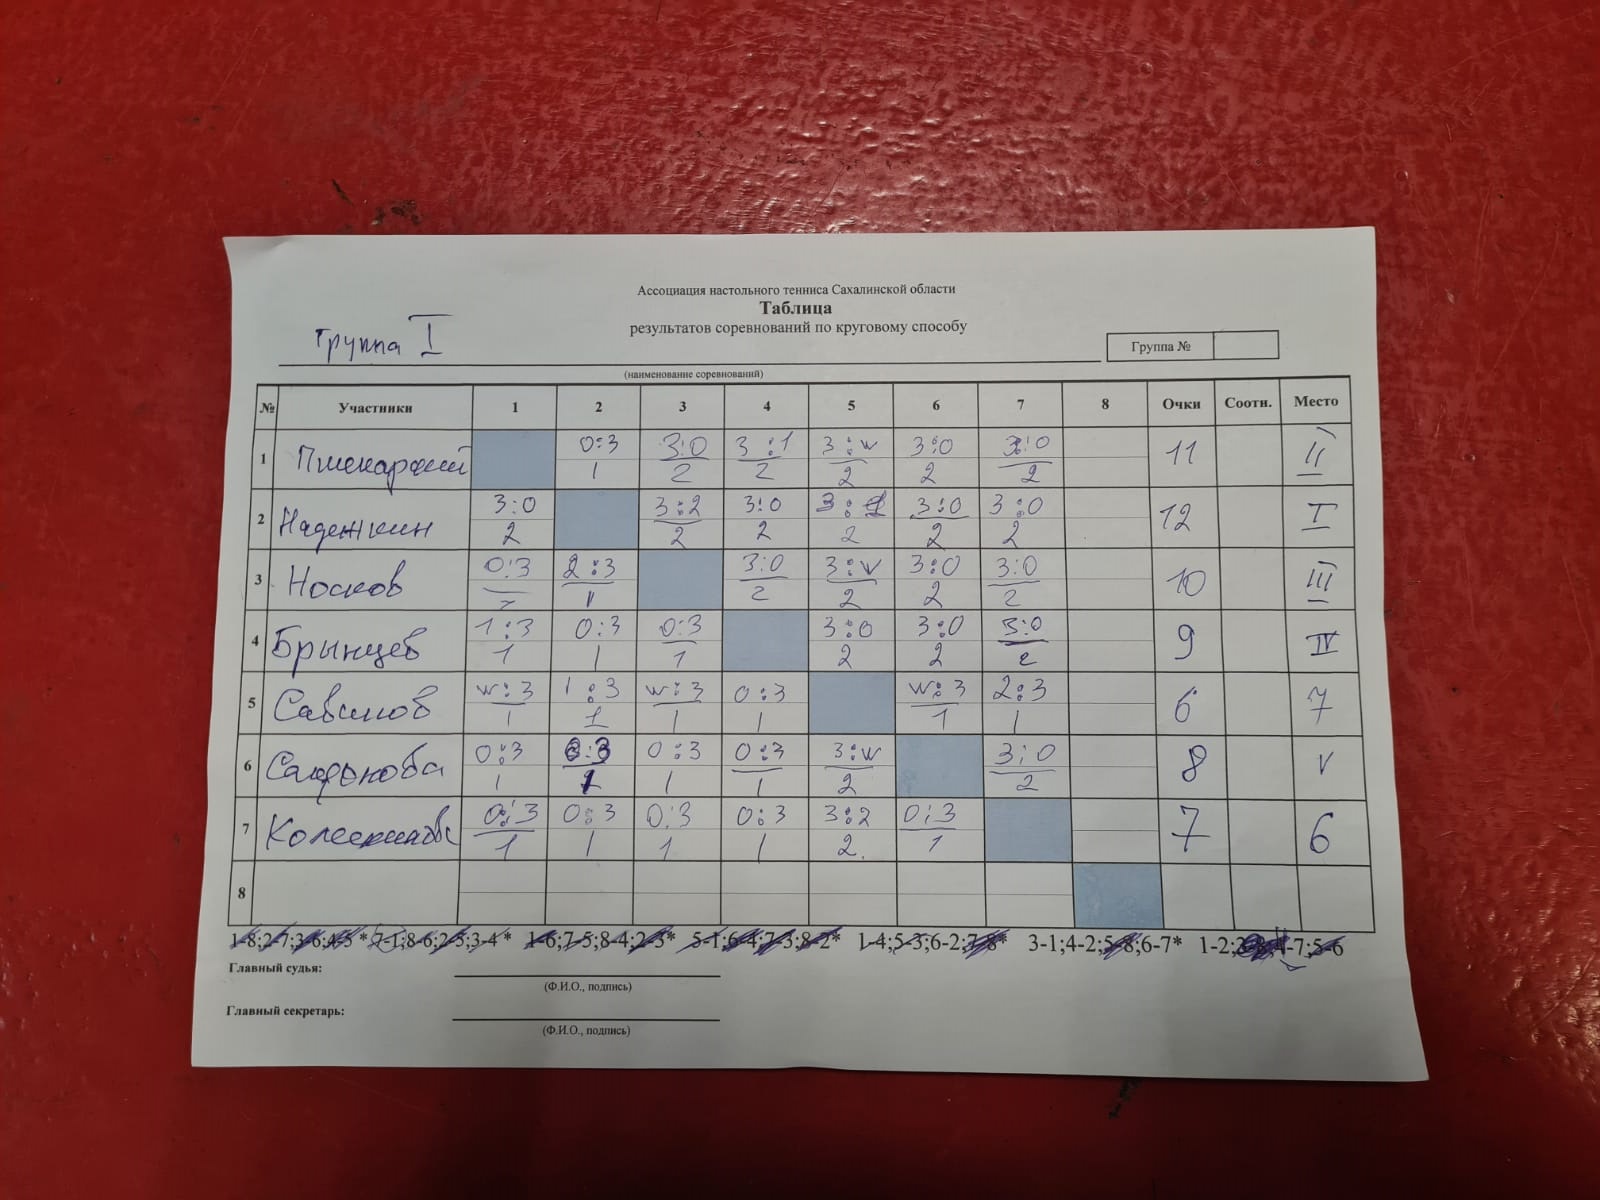 Ассоциация настольного тенниса Сахалинской области
Таблица
результатов соревнований по круговому способу
Группа I
Группа №
(наименование соревнований)
№ Участники 1 2 3 4 5 6 7 8 Очки Соотн. Место
1 0:3 3:0 3:1 3:w 3:0 3:0
1 2 2 2 2 2 11 II
2 Надежкин 3:0 3:2 3:0 3:1 3:0 3:0
2 2 2 2 2 2 12 I
3 Носков 0:3 2:3 3:0 3:w 3:0 3:0
1 2 2 2 2 10 III
4 Брынцев 1:3 0:3 0:3 3:0 3:0 3:0
1 1 1 2 2 2 9 IV
5 Савинов w:3 1:3 w:3 0:3 w:3 2:3
1 1 1 1 1 1 6 7
6 0:3 0:3 0:3 0:3 3:w 3:0
1 1 1 1 2 2 8 V
7 0:3 0:3 0:3 0:3 3:2 0:3
1 1 1 1 2. 1 7 6
8
1-8;2-7;3-6;4-5 * 7-1;8-6;2-5;3-4 * 1-6;7-5;8-4;2-3* 5-1;6-4;7-3;8-2* 1-4;5-3;6-2;7-8* 3-1;4-2;5-8;6-7* 1-2; 4-7;5-6
Главный судья:
(Ф.И.О., подпись)
Главный секретарь:
(Ф.И.О., подпись)